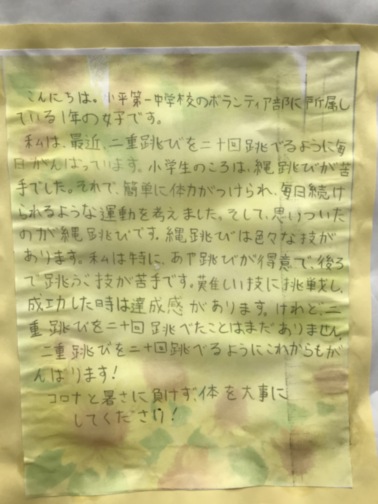 こんにちは。小平第一中学校のボランティア部に所属し
ている1年の女子です。
私は、最近、二重跳びを二十回跳べるように毎
日がんばっています。小学生のころは、縄跳びが苦
手でした。それで、簡単に体力がつけられ、毎日続け
られるような運動を考えました。そして、思いついた
のが縄跳びです。縄跳びは色々な技が
あります。私は特に、あや跳びが得意で、後ろ
で跳ぶ技が苦手です。難しい技に挑戦し、
成功した時は達成感があります。けれど、二
重跳びを二十回跳べたことはまだありません。
二重跳びを二十回跳べるようにこれからもが
んばります!
コロナと暑さに負けず、体を大事に
してください!